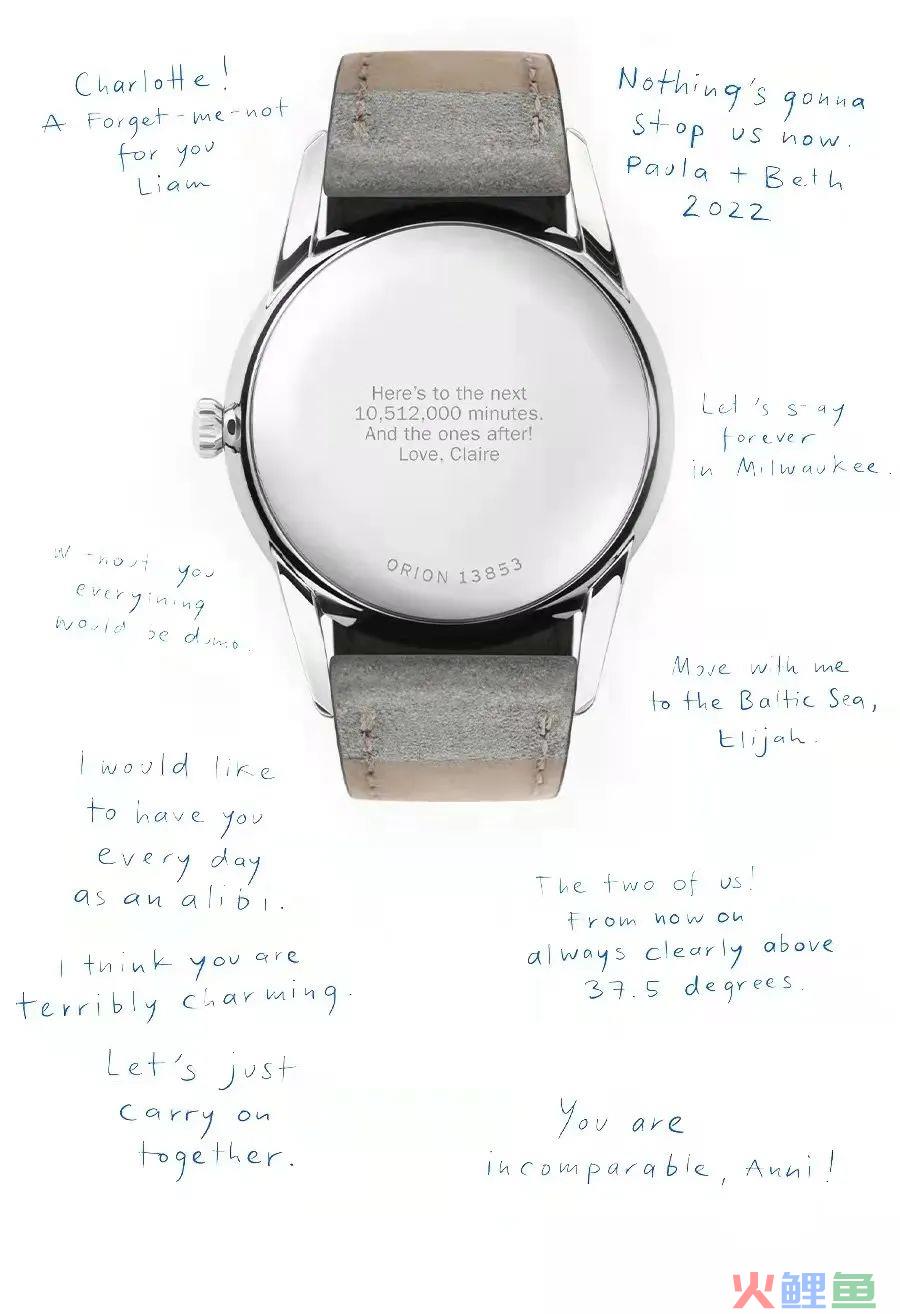 Charlotte!
A Forget-me-not
for you
Liam
Nothing's gonna
stop us now.
Paula + Beth
2022
Here's to the next
10,512,000 minutes.
And the ones after!
Love, Claire
ORION 13853
Let's s ay
forever
in Milwaukee.
you
everything
would be
Move with me
to the Baltic Sea,
Elijah.
I would like
to have you
every day
as an alibi.
The two of us!
From now on
always clearly above
37.5 degrees.
I think you are
terribly charming.
Let's just
carry on
together.
You are
incomparable, Anni!
火鲤鱼